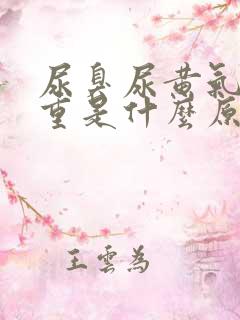 尿臭尿黄氣
重是什麼原
王雲為